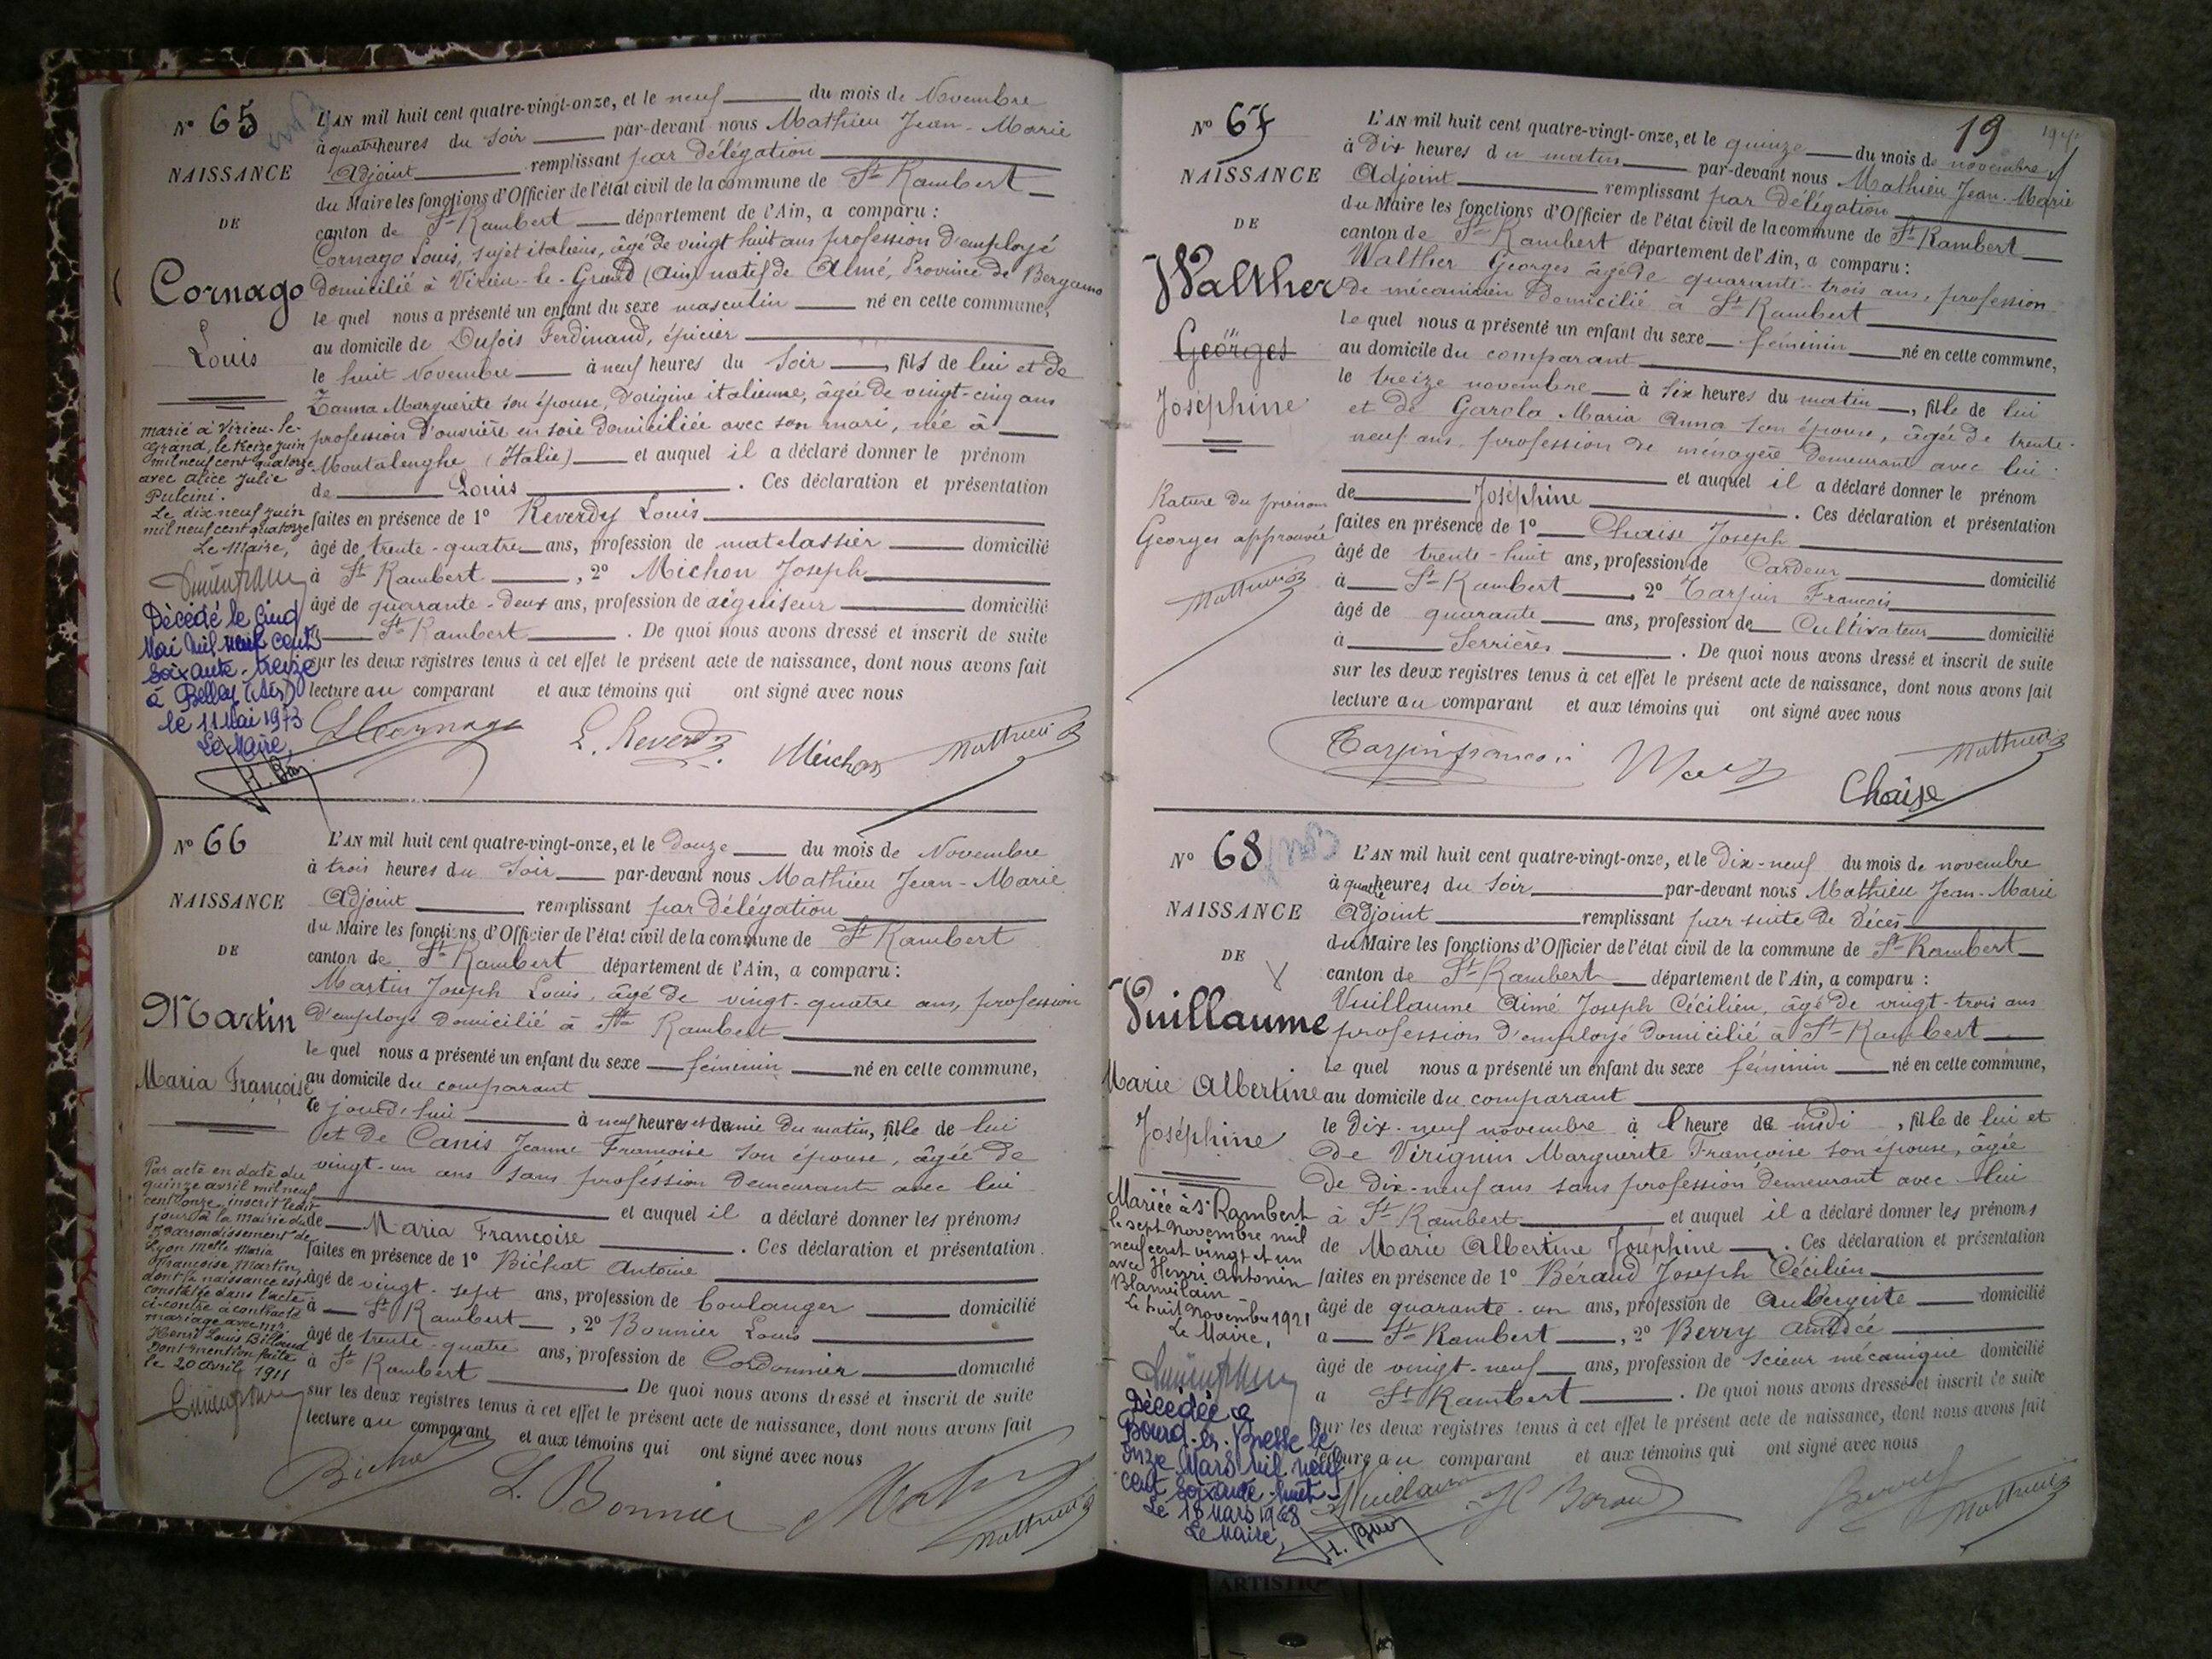 N° 65
NAISSANCE
DE
Cornago
Louis
L'AN mil huit cent quatre-vingt-onze, et le neuf du mois de Novembre
à quatre heures du soir par-devant nous Mathieu Jean-Marie
Adjoint remplissant par délégation
du Maire les fonctions d'Officier de l'état civil de la commune de St Rambert
canton de St Rambert département de l'Ain, a comparu :
Cornago Louis, sujet italien, âgé de vingt huit ans profession d'employé
domicilié à Virieu-le-Grand (Ain) natif de Almé, Province de Bergamo
le quel nous a présenté un enfant du sexe masculin né en cette commune,
au domicile de Dufois Ferdinand, épicier
le huit Novembre à neuf heures du soir, fils de lui et de
Zanna Marguerite son épouse, d'origine italienne, âgée de vingt-cinq ans
profession d'ouvrière en soie domiciliée avec son mari, née à
Montalenghe (Italie) et auquel il a déclaré donner le prénom
de Louis. Ces déclaration et présentation
faites en présence de 1° Reverdy Louis
âgé de trente-quatre ans, profession de matelassier domicilié
à St Rambert, 2° Michon Joseph
âgé de quarante-deux ans, profession de aiguiseur domicilié
à St Rambert. De quoi nous avons dressé et inscrit de suite
sur les deux registres tenus à cet effet le présent acte de naissance, dont nous avons fait
lecture au comparant et aux témoins qui ont signé avec nous
marié à Virieu-le-
Grand, le treize juin
mil neuf cent quatorze
avec Alice Julie
Pulcini.
Le dix-neuf juin
mil neuf cent quatorze
Le Maire,
Décédé le cinq
Mai mil neuf cent
soixante-treize
à Belley (Ain)
le 11 Mai 1973
Le Maire,
Cornago
L. Reverdy
Michon
Mathieu
N° 66
NAISSANCE
DE
Martin
Maria Françoise
L'AN mil huit cent quatre-vingt-onze, et le douze du mois de Novembre
à trois heures du soir par-devant nous Mathieu Jean-Marie
Adjoint remplissant par délégation
du Maire les fonctions d'Officier de l'état civil de la commune de St Rambert
canton de St Rambert département de l'Ain, a comparu :
Martin Joseph Louis, âgé de vingt-quatre ans, profession
d'employé domicilié à St Rambert
le quel nous a présenté un enfant du sexe féminin né en cette commune,
au domicile du comparant
le jourd'hui à neuf heures et demie du matin, fille de lui
et de Canis Jeanne Françoise son épouse, âgée de
vingt-un ans sans profession demeurant avec lui
et auquel il a déclaré donner les prénoms
de Maria Françoise. Ces déclaration et présentation
faites en présence de 1° Bichat Antoine
âgé de vingt-sept ans, profession de boulanger domicilié
à St Rambert, 2° Bonnier Louis
âgé de trente-quatre ans, profession de Cordonnier domicilié
à St Rambert. De quoi nous avons dressé et inscrit de suite
sur les deux registres tenus à cet effet le présent acte de naissance, dont nous avons fait
lecture au comparant et aux témoins qui ont signé avec nous
Par acte en date du
quinze avril mil neuf
cent onze, inscrit ledit
jour à la mairie du
arrondissement de
Lyon Melle Maria
Françoise Martin,
dont la naissance est
constatée dans l'acte
ci-contre a contracté
mariage avec Mr
Henri Louis Billaud
Dont mention faite
le 20 avril 1911
Bichat
L. Bonnier
Mathieu
19
N° 67
NAISSANCE
DE
Walther
Georges
Joséphine
L'AN mil huit cent quatre-vingt-onze, et le quinze du mois de novembre
à dix heures du matin par-devant nous Mathieu Jean-Marie
Adjoint remplissant par délégation
du Maire les fonctions d'Officier de l'état civil de la commune de St Rambert
canton de St Rambert département de l'Ain, a comparu :
Walther Georges âgé de quarante-trois ans, profession
de mécanicien domicilié à St Rambert
le quel nous a présenté un enfant du sexe féminin né en cette commune,
au domicile du comparant
le treize novembre à six heures du matin, fille de lui
et de Garola Maria Anna son épouse, âgée de trente-
neuf ans, profession de ménagère demeurant avec lui
et auquel il a déclaré donner le prénom
de Joséphine. Ces déclaration et présentation
faites en présence de 1° Chaise Joseph
âgé de trente-huit ans, profession de Cardeur domicilié
à St Rambert, 2° Tarpin François
âgé de quarante ans, profession de Cultivateur domicilié
à Serrières. De quoi nous avons dressé et inscrit de suite
sur les deux registres tenus à cet effet le présent acte de naissance, dont nous avons fait
lecture au comparant et aux témoins qui ont signé avec nous
Rature du prénom
Georges approuvée
Mathieu
Tarpin francois
Chaise
Mathieu
N° 68
NAISSANCE
DE
Vuillaume
Marie Albertine
Joséphine
L'AN mil huit cent quatre-vingt-onze, et le dix-neuf du mois de novembre
à quatre heures du soir par-devant nous Mathieu Jean-Marie
Adjoint remplissant par suite de décès
du Maire les fonctions d'Officier de l'état civil de la commune de St Rambert
canton de St Rambert département de l'Ain, a comparu :
Vuillaume Aimé Joseph Cécilien, âgé de vingt-trois ans
profession d'employé domicilié à St Rambert
le quel nous a présenté un enfant du sexe féminin né en cette commune,
au domicile du comparant
le dix-neuf novembre à l'heure de midi, fille de lui et
de Virignin Marguerite Françoise son épouse, âgée
de dix-neuf ans sans profession demeurant avec lui
à St Rambert et auquel il a déclaré donner les prénoms
de Marie Albertine Joséphine. Ces déclaration et présentation
faites en présence de 1° Béraud Joseph Cécilien
âgé de quarante-un ans, profession de Aubergiste domicilié
à St Rambert, 2° Berry Amédée
âgé de vingt-neuf ans, profession de scieur mécanique domicilié
à St Rambert. De quoi nous avons dressé et inscrit de suite
sur les deux registres tenus à cet effet le présent acte de naissance, dont nous avons fait
lecture au comparant et aux témoins qui ont signé avec nous
Mariée à St Rambert
le sept Novembre mil
neuf cent vingt et un
avec Henri Antonin
Blanvilain
Le huit Novembre 1921
Le Maire,
Décédée à
Bourg-en-Bresse le
onze Mars mil neuf
cent soixante-huit
Le 18 Mars 1968
Le Maire,
Vuillaume
Beraud
Mathieu
ARTISTIQ